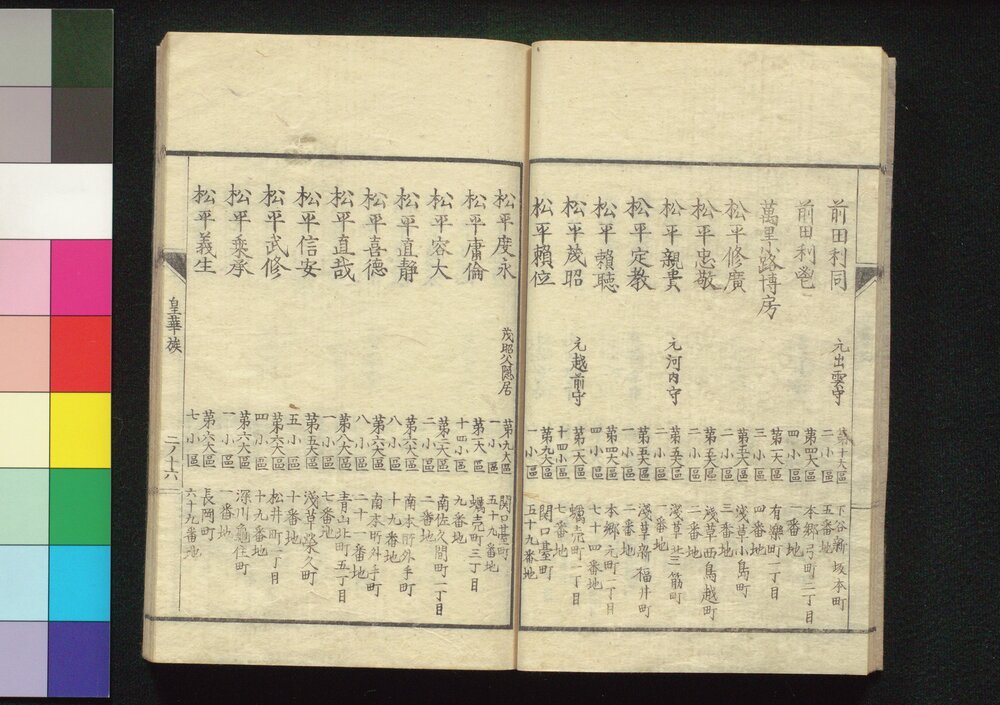 前田利同 元出雲守 第十大區二小區 下谷新坂本町五番地
前田利鬯 第四大區四小區 本郷弓町二丁目一番地
萬里小路博房 第一大區三小區 有樂町一丁目四番地
松平修廣 第五大區一小區 淺草小島町三番地
松平忠敬 第五大區二小區 淺草西鳥越町二番地
松平親貴 元河内守 第五大區二小區 淺草北三筋町一番地
松平定教 第五大區一小區 淺草新福井町二番地
松平賴聰 第四大區四小區 本郷元町一丁目七十四番地
松平茂昭 元越前守 第一大區十四小區 蠣壳町一丁目七番地
松平賴位 第九大區一小區 関口臺町五十九番地
松平慶永 茂昭父隠居 第九大區一小區 関口臺町五十九番地
松平康倫 第一大區十四小區 蠣壳町三丁目九番地
松平容大 第一大區二小區 南佐久間町一丁目二番地
松平直靜 第六大區八小區 南本所外手町十九番地
松平喜德 第六大區八小區 南本所外手町二十一番地
松平直哉 第八大區一小區 青山北町五丁目七番地
松平信安 第五大區五小區 淺草榮久町十番地
松平武修 第六大區四小區 松井町一丁目十九番地
松平乘承 第六大區一小區 深川龜住町一番地
松平義生 第六大區七小區 長岡町六十九番地
皇華族 二ノ十六